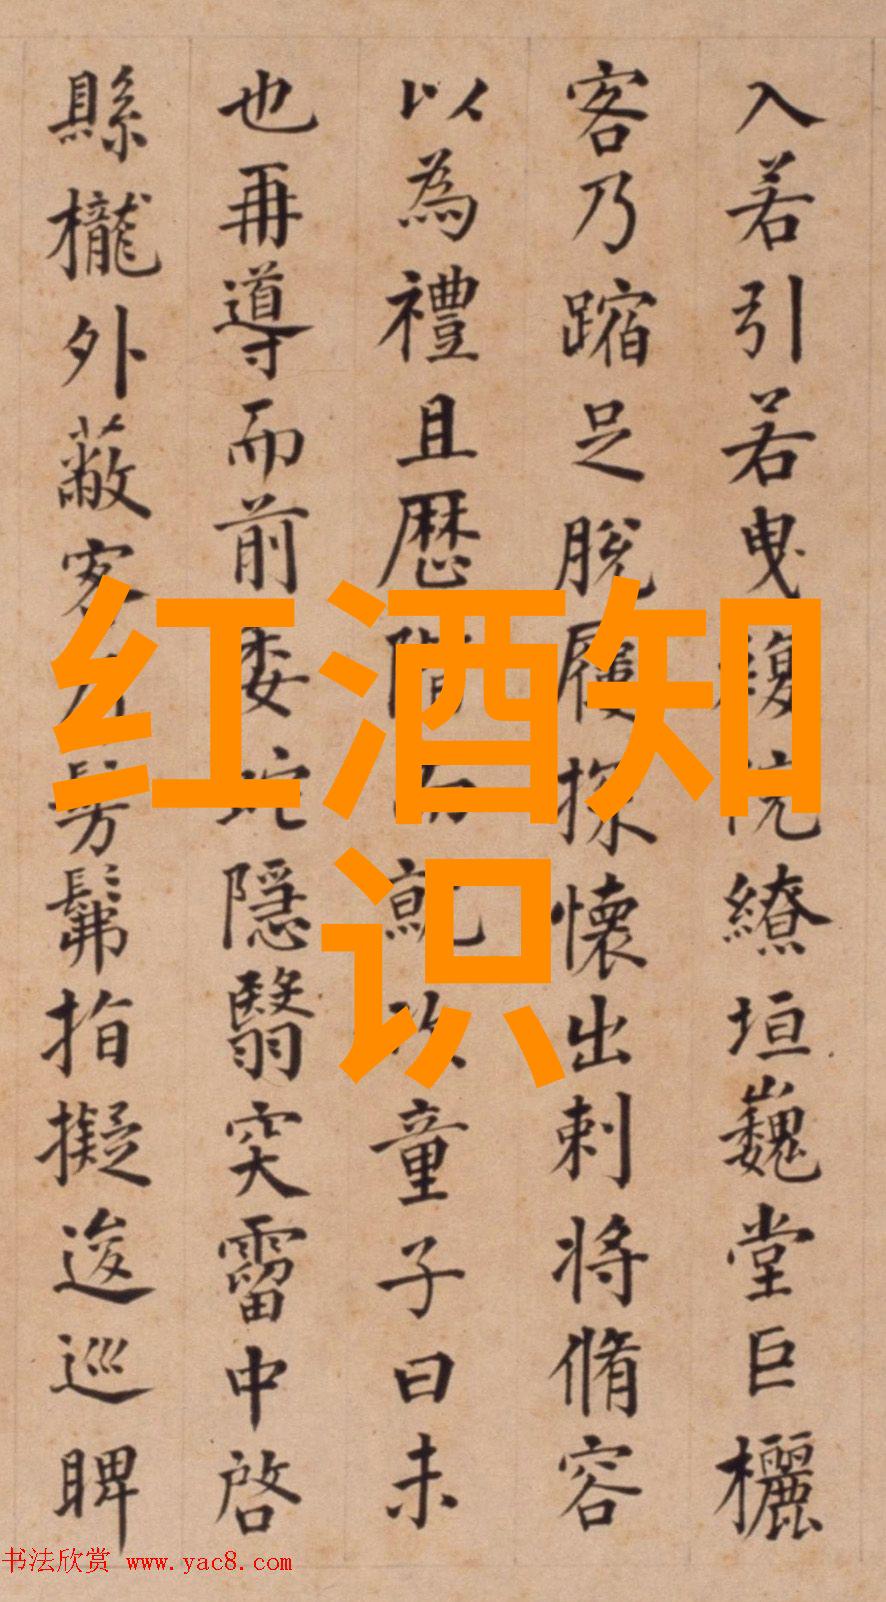 入若引若曳繚垣巍堂巨欐
客乃蹜足脫履探懷出刺將脩容
以為禮且歷階而就次童子曰未
也再導而前委蛇隱翳突霤中啓
縣櫳外蔽客髣髴指擬逡巡睥
红酒知
识
书法欣赏 www.yac8.com